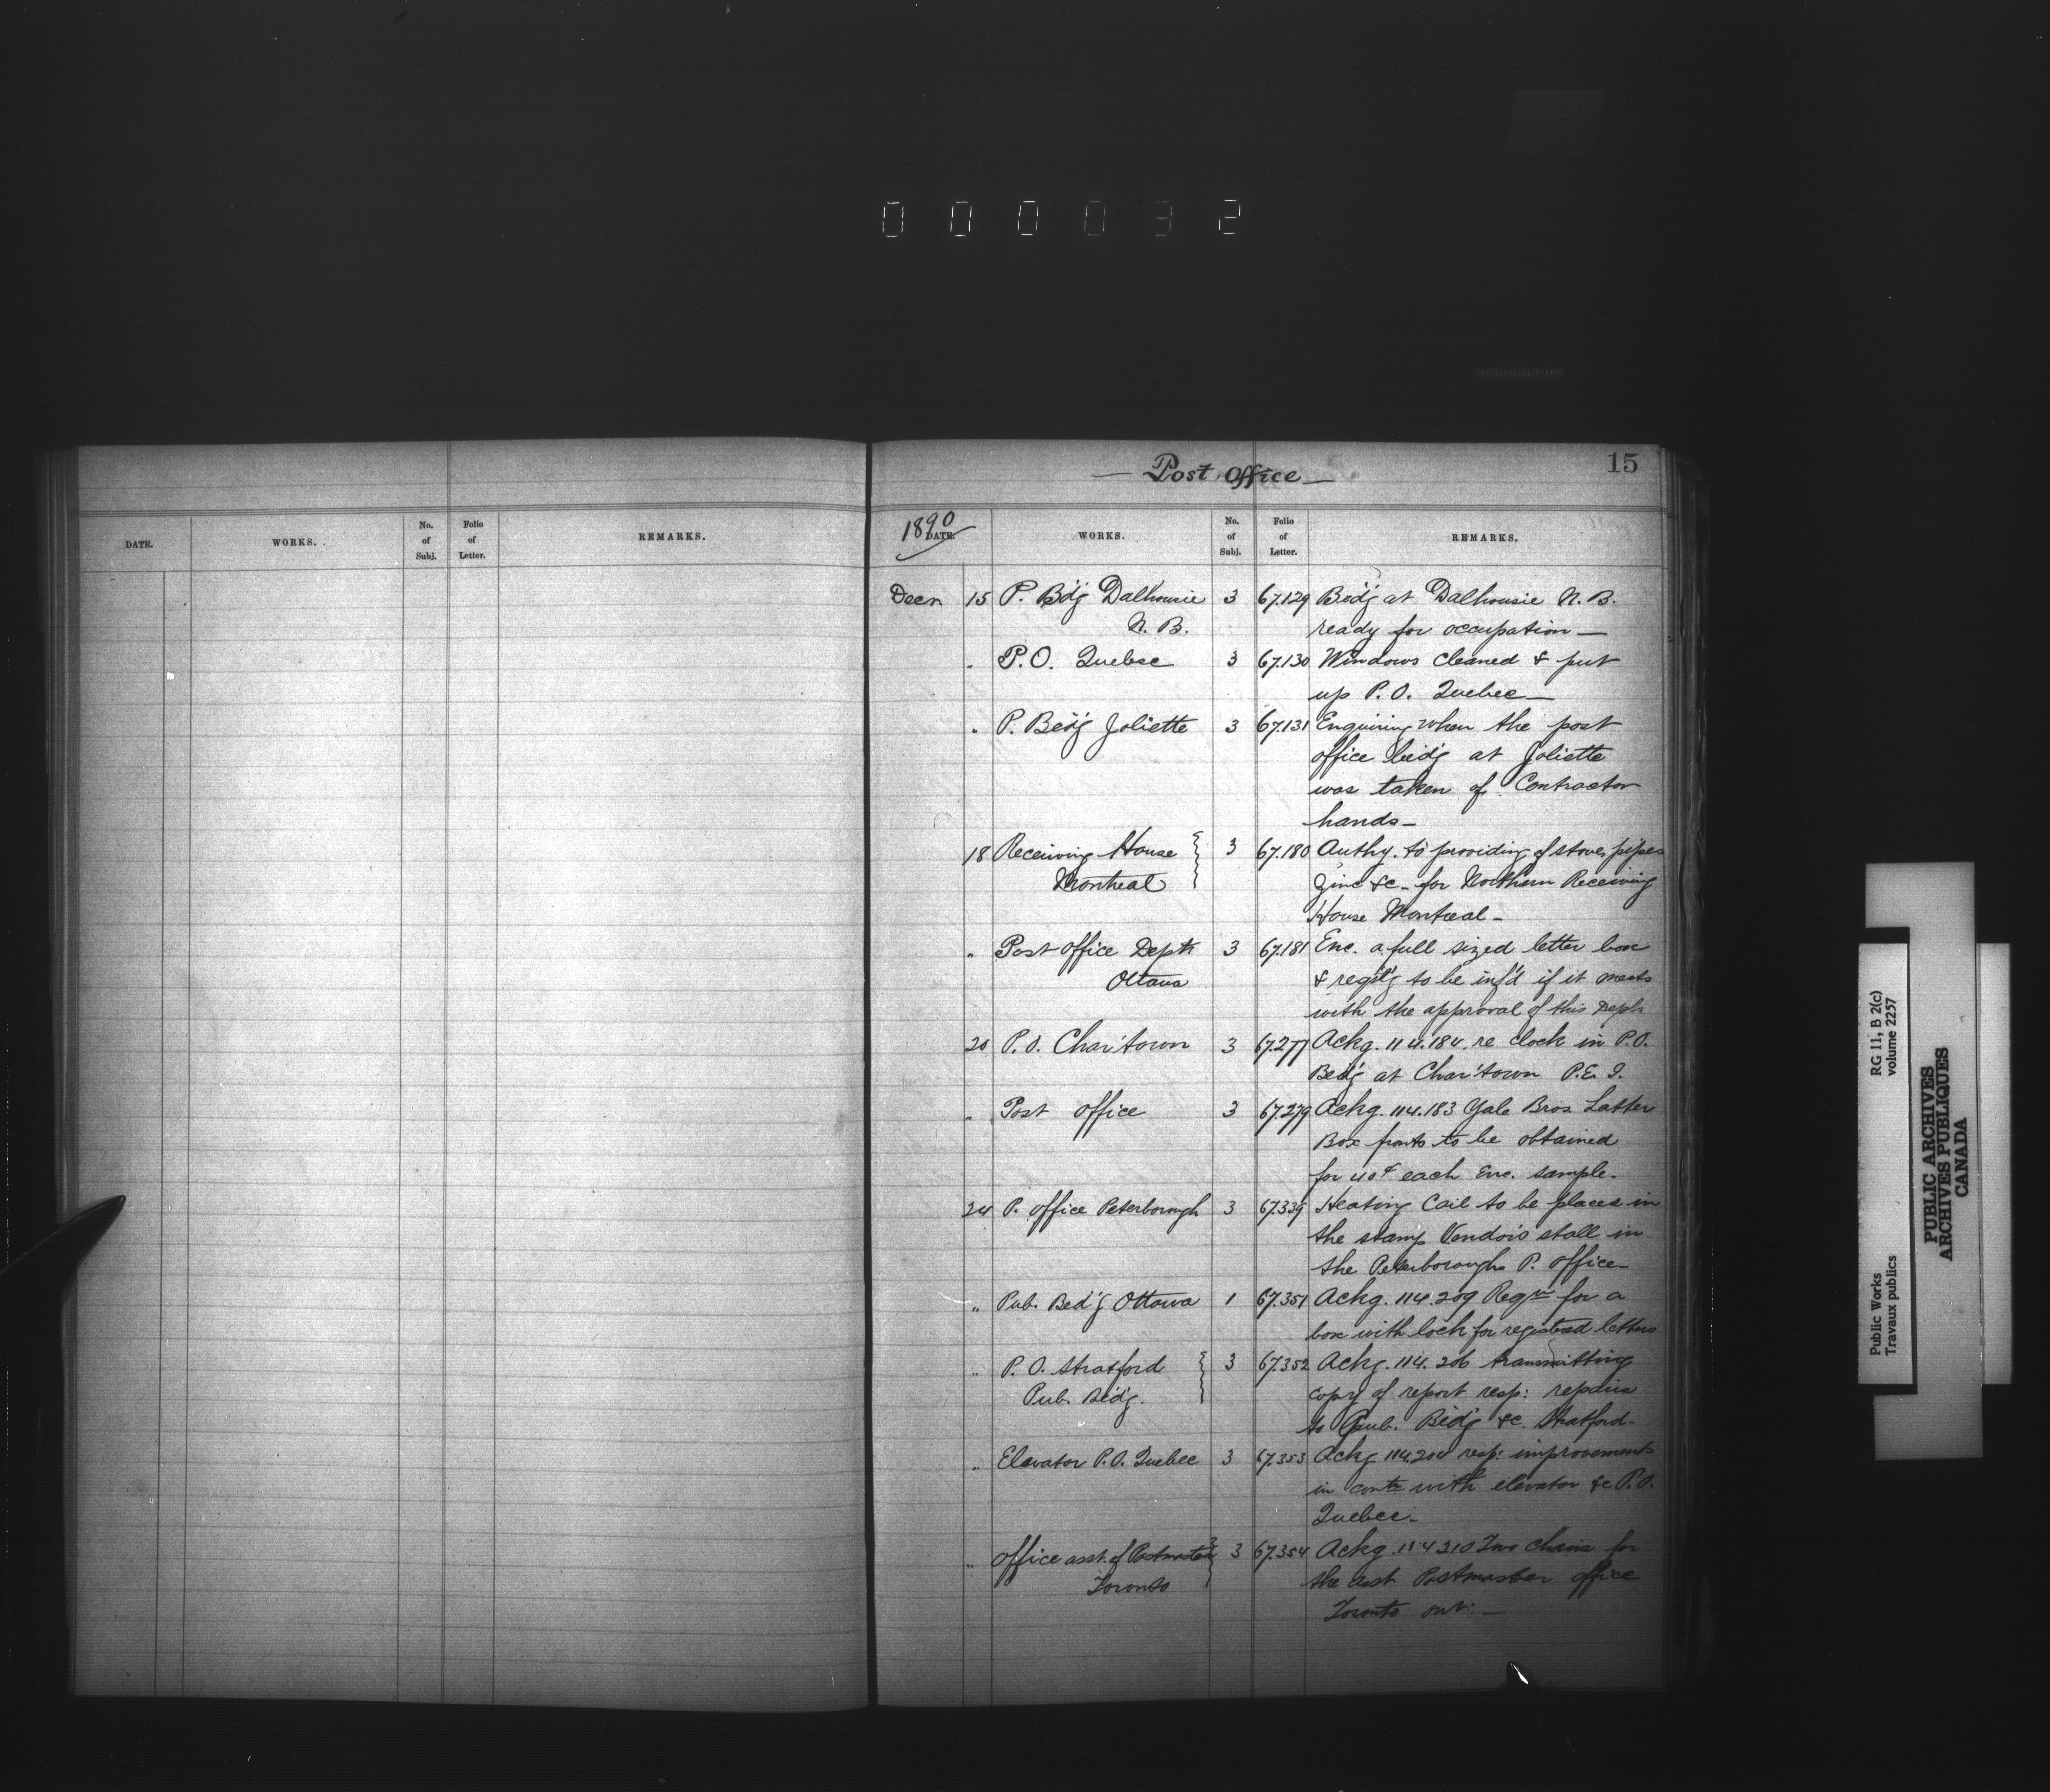 000032
DATE. WORKS. No. of Subj. Folio of Letter. REMARKS.
— Post Office — 15
1890 DATE. WORKS. No. of Subj. Folio of Letter. REMARKS.
Decr. 15 P. Bd'g Dalhousie 3 67.129 Bid'g at Dalhousie N. B.
N. B. ready for occupation —
" P.O. Quebec 3 67.130 Windows cleaned & put
up P.O. Quebec —
" P. Bed'g Joliette 3 67.131 Enquiring when the post
office bid'g at Joliette
was taken of Contractor
hands —
18 Receiving House 3 67.180 Authy. to providing of stoves pipes
Montreal Zinc &c - for Northern Receiving
House Montreal -
" Post Office Deptt 3 67.181 Enc. a full sized letter box
Ottawa & reqst'g to be inf'd if it meets
with the approval of this Deptt
20 P.O. Char'town 3 67.277 Ackg. 114.184. re clock in P.O.
Bed'g at Char'town P.E.I.
" Post Office 3 67.279 Ackg. 114.183 Yale Bros Letter
Box fronts to be obtained
for 40¢ each Enc. sample -
24 P. Office Peterborough 3 67.339 Heating Coil to be places in
the stamp Vendors stall in
the Peterborough P. Office -
" Pub. Bed'g Ottawa 1 67.351 Ackg. 114.209 Reqn for a
box with lock for registered letters
" P.O. Stratford 3 67.352 Ackg. 114.206 transmitting
Pub. Bid'g. copy of report resp: repairs
to Pub. Bid'g &c. Stratford -
" Elevator P.O. Quebec 3 67.353 Ackg 114.204 resp: improvements
in with elevator &c P.O.
Quebec -
" Office asst. of Postmaster 3 67.354 Ackg. 114210 Two chairs for
Toronto the asst Postmaster office
Toronto ont: —
Public Works RG 11, B 2(c)
Travaux publics volume 2257
PUBLIC ARCHIVES
ARCHIVES PUBLIQUES
CANADA